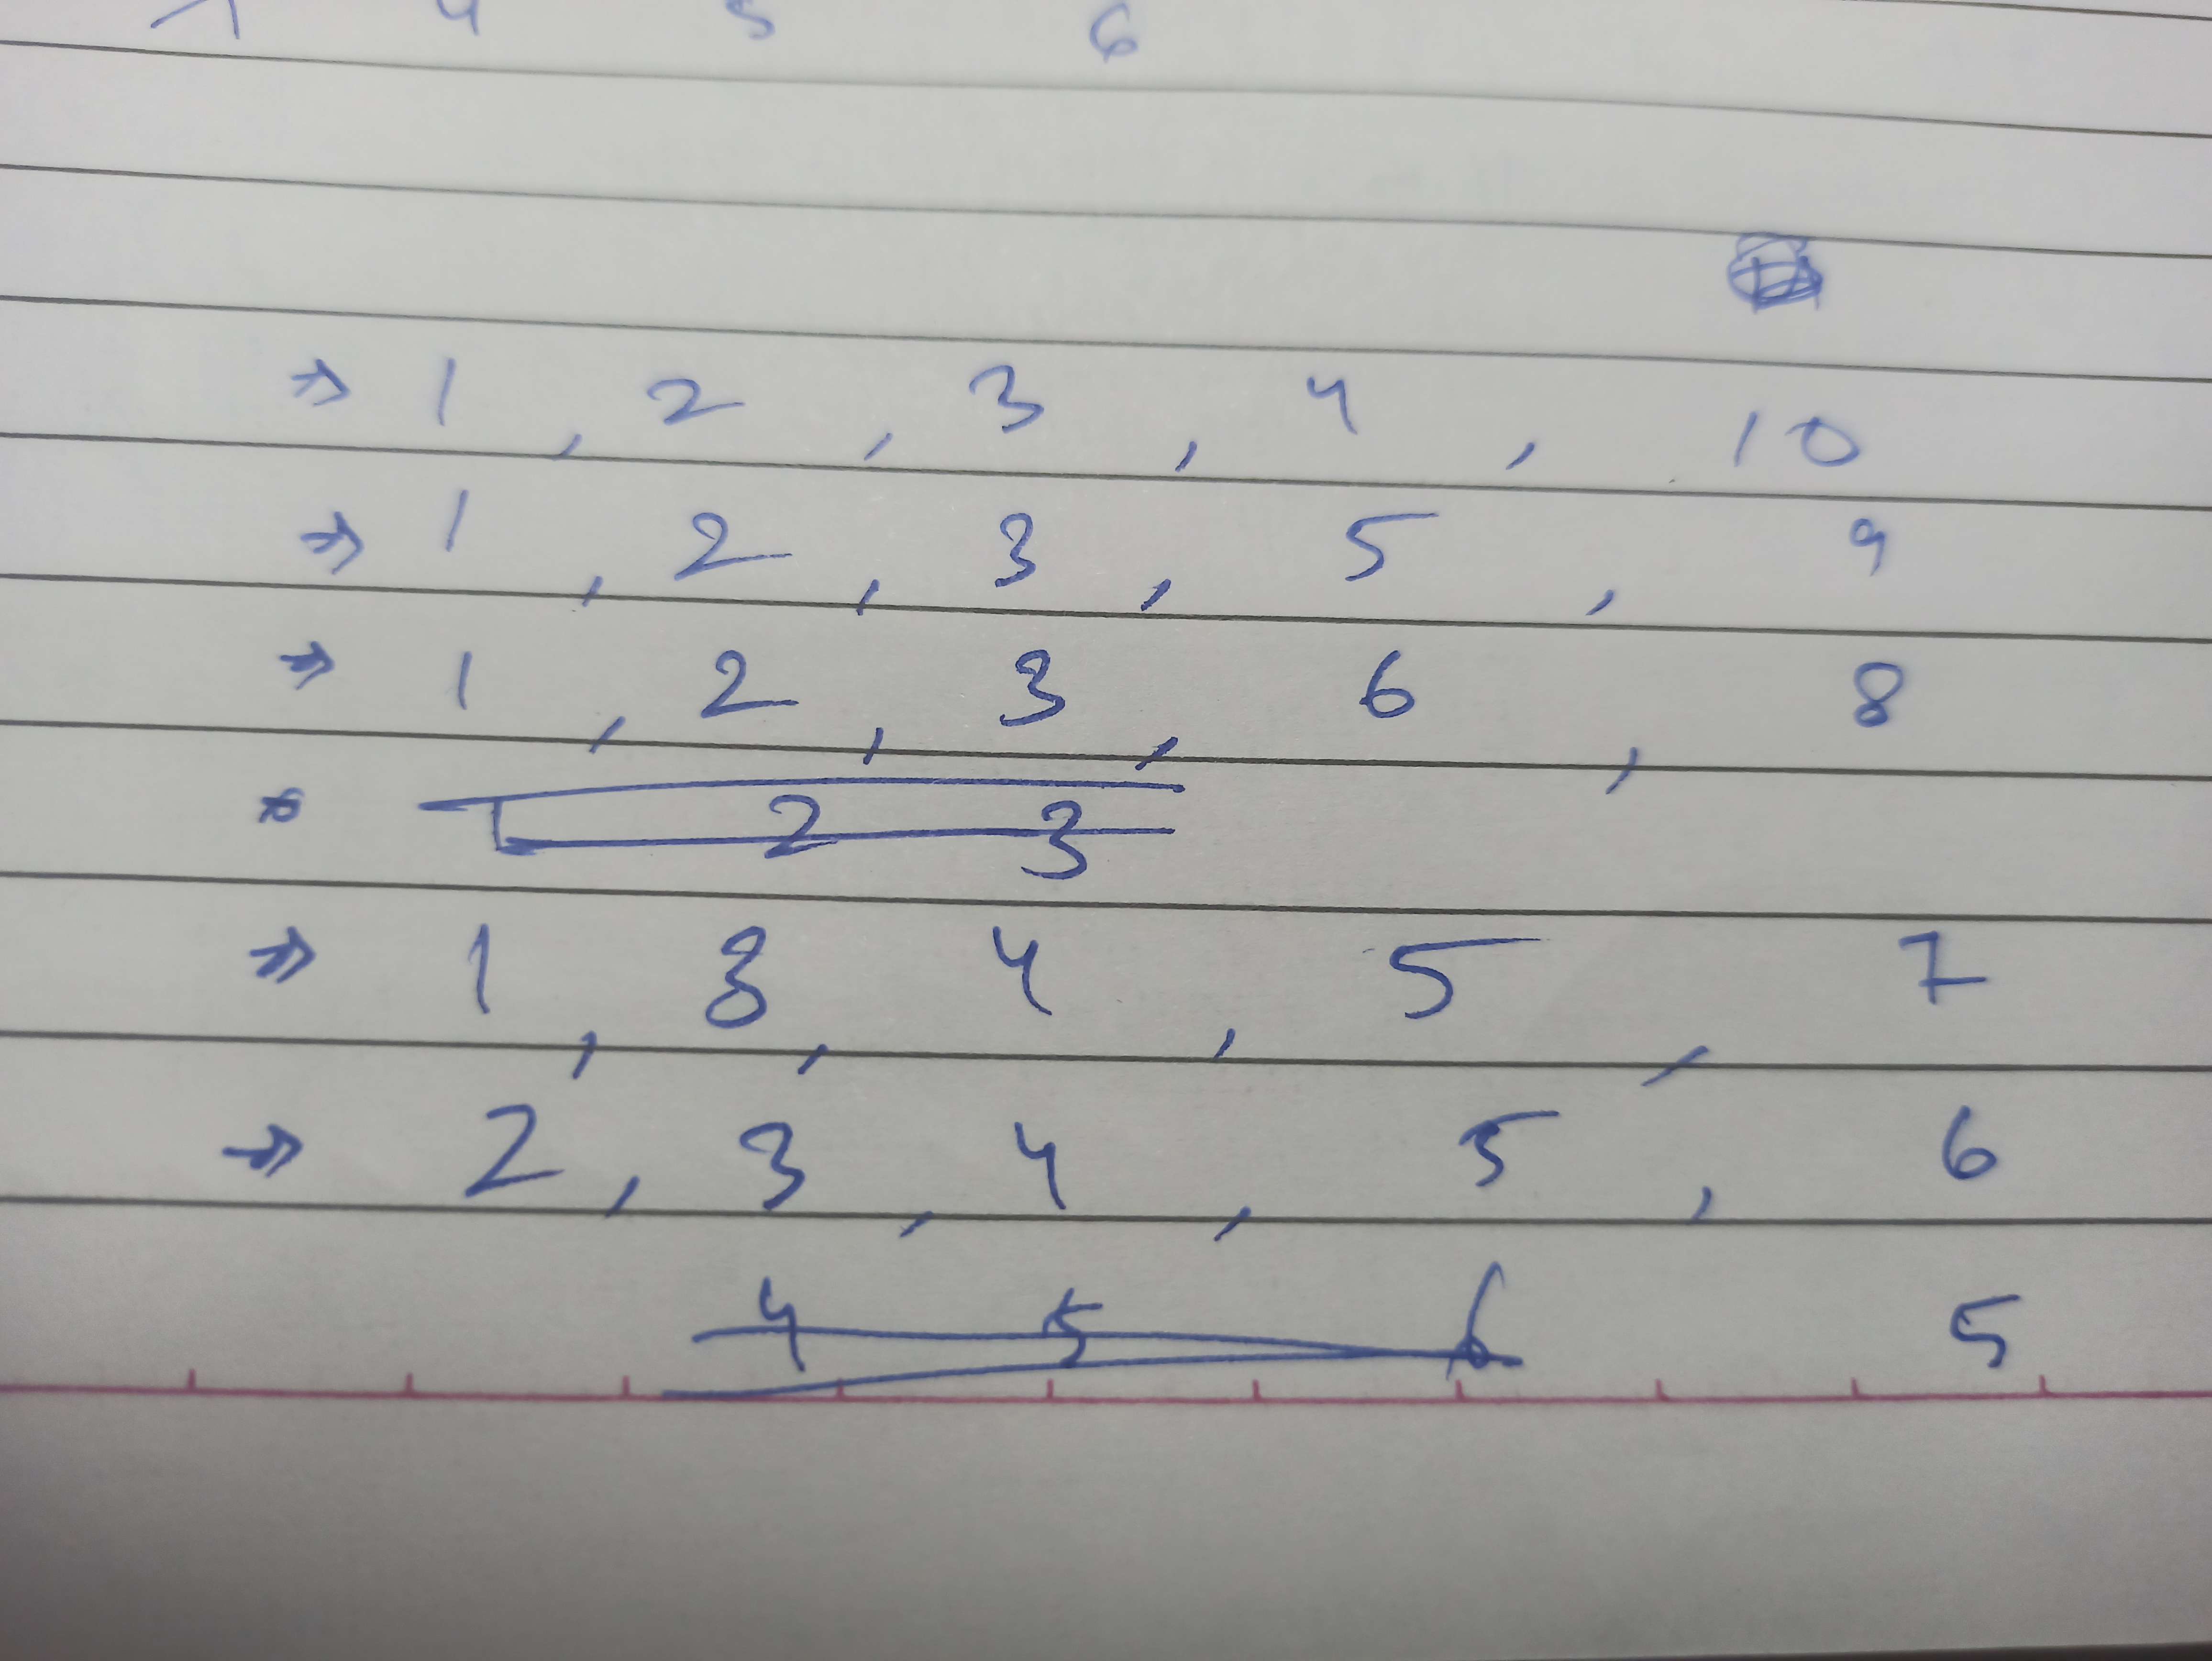 1 4 5 6
⇒ 1 , 2 , 3 , 4 , 10
⇒ 1 , 2 , 3 , 5 , 9
⇒ 1 , 2 , 3 , 6 , 8
2 3
⇒ 1 , 3 , 4 , 5 , 7
⇒ 2 , 3 , 4 , 5 , 6
4 5 6 5